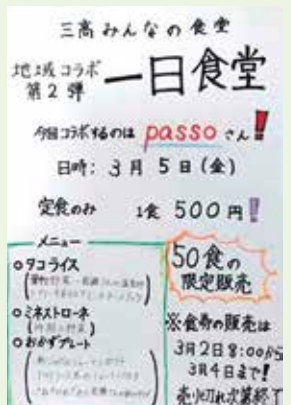 三高みんなの食堂
地域コラボ
第2弾
一日食堂
今回コラボするのは passo さん!
日時: 3月5日(金)
定食のみ 1食 500円!
メニュー
○タコライス
○ミネストローネ
○おかずプレート
50食の
限定販売
※食券の販売は
3月2日8:00から
3月4日まで!
売り切れ次第終了